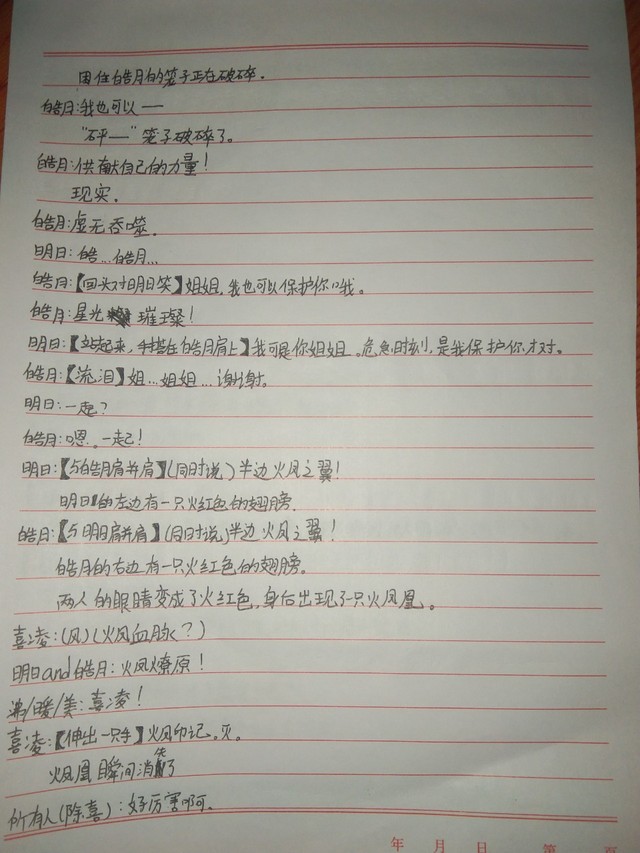 困住皓月的笼子正在破碎.
皓月:我也可以——
“砰——”笼子破碎了。
皓月:供献自己的力量!
现实.
皓月:虚无吞噬.
明日:皓...皓月...
皓月:【回头对明日笑】姐姐,我也可以保护你哦。
皓月:星光璀璨!
明日:【站起来,手搭在皓月肩上】我可是你姐姐。危急时刻,是我保护你才对。
皓月:【流泪】姐...姐姐...谢谢。
明日:一起?
皓月:嗯。一起!
明日:【与皓月肩并肩】(同时说)半边火凤之翼!
明日的左边有一只火红色的翅膀.
皓月:【与明日肩并肩】(同时说)半边火凤之翼!
皓月的右边有一只火红色的翅膀。
两人的眼睛变成了火红色,身后出现了一只火凤凰。
喜凌:(风)(火凤血脉?)
明日and皓月:火凤燎原!
沸/暖/美:喜凌!
喜凌:【伸出一只手】火凤印记。灭。
火凤凰瞬间消失了
所有人(除喜):好厉害啊.
年 月 日 第 页